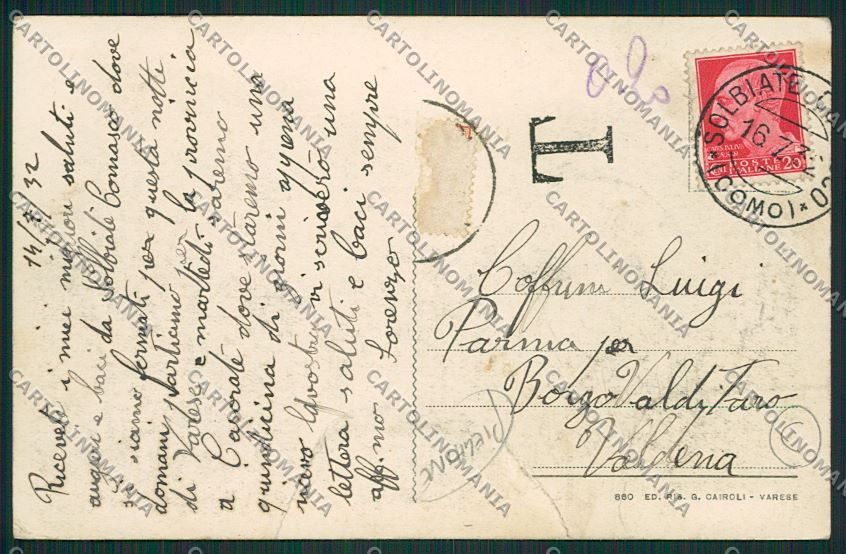 14/7/32
Ricevete i miei migliori saluti e
auguri e baci da Solbiate Comasco dove
si siamo fermati per questa notte
domani partiamo per la provincia
di Varese e martedì saremo
a Casorate dove staremo una
quindicina di giorni appena
avostro vi scriverò una
lettera saluti e baci sempre
aff.mo Lorenzo
T
SOLBIATE
16.7.
(COMO)
POSTE
ITALIANE
20
Coffrini Luigi
Parma per
Borgo Val di Taro
Valdena
PIEGHONE
860 ED. RIS. G. CAIROLI - VARESE
CARTOLINOMANIA